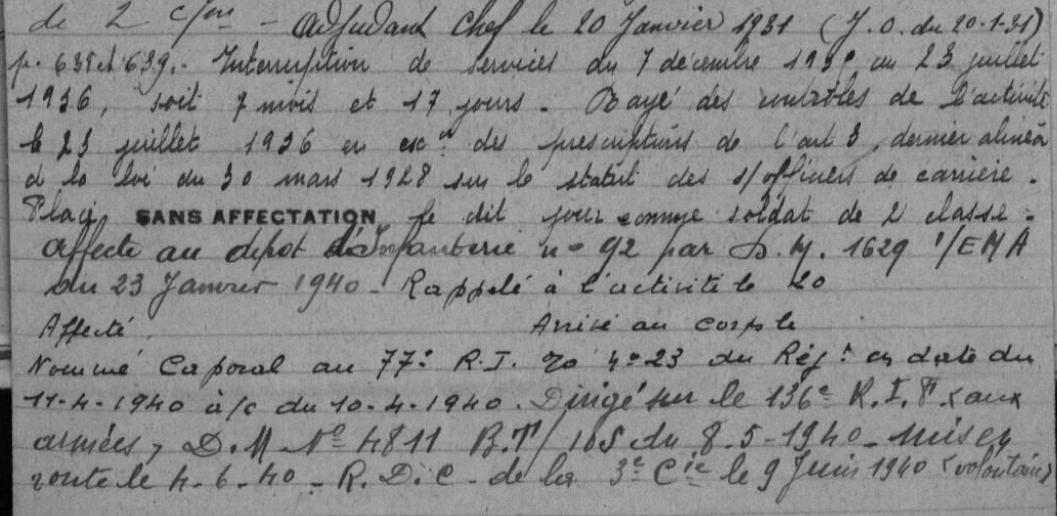 de 2 c/m - adjudant Chef le 20 Janvier 1931 (J.O. du 20-1-31)
p. 635 et 639. - Interruption de services du 7 décembre 1935 au 23 juillet
1936, soit 7 mois et 17 jours. Rayé des contrôles de l'activité
le 23 juillet 1936 en exon des prescriptions de l'art 3, dernier alinéa
d la loi du 30 mars 1928 sur le statut des s/officiers de carrière.
Placé SANS AFFECTATION le dit jour comme soldat de 2 classe.
affecté au dépot d'Infanterie no 92 par D.M. 1629 1/EMA
du 23 Janvier 1940 - Rappelé à l'activité le 20
Affecté Arrivé au corps le
Nommé Caporal au 77e R.I. 4=23 du Régt en date du
11-4-1940 à/c du 10-4-1940. Dirigé sur le 136e R.I.F. (aux
armées, D.M No 4811 B.T/ du 8-5-1940 - mis en
route le 4-6-40 - R.D.C - de la 3e Cie le 9 Juin 1940 (volontaire)